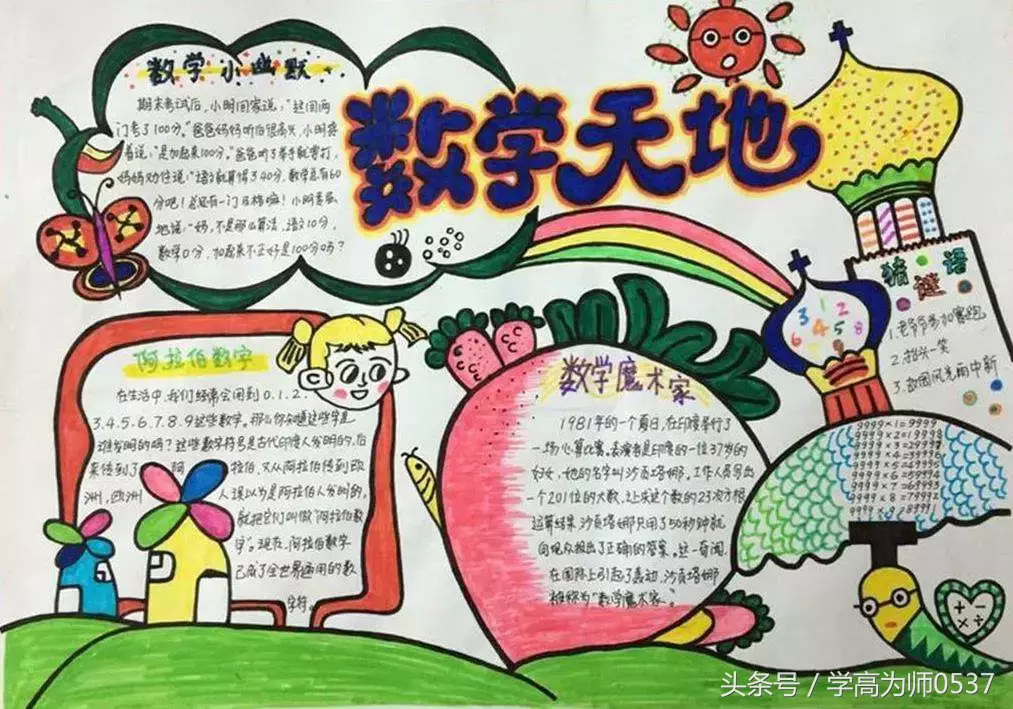 数学天地
数学小幽默
期末考试后，小明回家说："这回两
门考了100分。"爸爸妈妈听后很高兴，小明接
着说："是加起来100分。"爸爸听了举手就要打，
妈妈劝住说："语文就算得了40分，数学总有60
分吧！总还有一门及格嘛！小明委屈
地说："妈，不是那么算法，语文10分，
数学0分，加起来不正好是100分吗？
猜谜语
1.老爷爷参加赛跑
2.抬头一笑
3.故园风光雨中新
阿拉伯数字
在生活中，我们经常会用到0.1.2.
3.4.5.6.7.8.9这些数字。那么你知道这些字是
谁发明的吗？这些数字符号是古代印度人发明的，后
来传到了阿拉伯，又从阿拉伯传到欧
洲，欧洲人误以为是阿拉伯人发明的，
就把它们叫做"阿拉伯数
字"。现在，阿拉伯数字
已成了全世界通用的数
字符。
数学魔术家
1981年的一个夏日，在印度举行了
一场心算比赛。表演者是印度的一位37岁的
妇女，她的名字叫沙贡塔娜。工作人员写出
一个201位的大数，让求这个数的23次方根
运算结果沙贡塔娜只用了50秒钟就
向观众报出了正确的答案。这一奇闻
在国际上引起了轰动，沙贡塔娜
被称为"数学魔术家"。
3 1 2
6 4 5 8
9999×1=9999
9999×2=19998
9999×3=29997
9999×4=39996
9999×5=49995
9999×6=59994
9999×7=69993
9999×8=79992
9999×9=89991
+ -
× ÷
头条号 / 学高为师0537